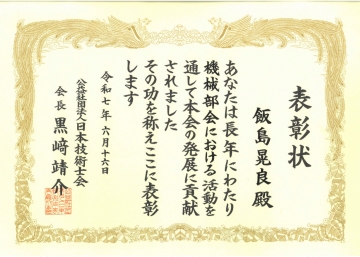 表彰状
飯島晃良殿
あなたは長年にわたり
機械部会における活動を
通して本会の発展に貢献
されました
その功を称えここに表彰
します
令和七年六月十六日
公益社団法人日本技術士会
会長 黒﨑靖介